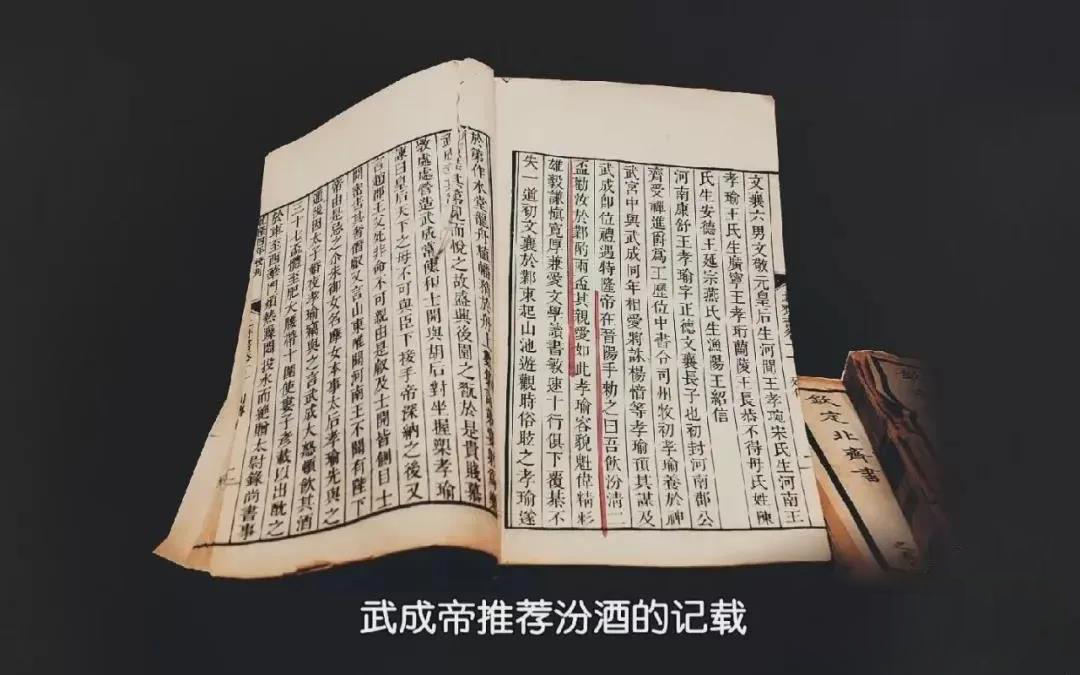 文襄六男文敬元皇后生河間王孝琬宋氏生河南王
孝瑜王氏生廣寧王孝珩蘭陵王長恭不得母氏姓陳
氏生安德王延宗燕氏生漁陽王紹信
河南康舒王孝瑜字正德文襄長子也初封河南郡公
齊受禪進爵爲王歷位中書令司州牧初孝瑜養於神
武宮中與武成同年相愛將誅楊愔等孝瑜預其謀及
武成即位禮遇特隆帝在晉陽手勑之曰吾飲汾清二
盃勸汝於鄴酌兩盃其親愛如此孝瑜容貌魁偉精彩
雄毅謙慎寬厚兼愛文學讀書敏速十行俱下覆棊不
失一道初文襄於鄴東起山池遊觀時俗眩之孝瑜遂
於第作水堂龍舟植幡矟於舟上
武成 其第見而悅之故盛興後園之翫於是貴賤慕
斆處處營造武成常使和士開與胡后對坐握槊孝瑜
諫曰皇后天下之母不可與臣下接手帝深納之後又
言趙郡王父死非命不可親由是叡及士開皆側目士
開密告其奢僭叡又言山東唯聞河南王不聞有陛下
帝由是忌之尒朱御女名摩女本事太后孝瑜先與之
通後因太子婚夜孝瑜竊與之言武成大怒頓飲其酒
三十七盃體至肥大腰帶十圍使婁子彥載以出酖之
於車至西華門煩熱躁悶投水而絕贈太尉錄尚書事
欽定北齊書
武成帝推荐汾酒的记载